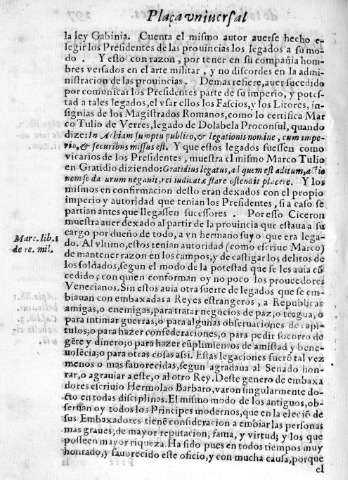 Plaça vniuersal
la ley Gabinia. Cuenta el mismo autor auerse hecho e-
legir los Presidentes de las prouincias los legados a su mo-
do. Y esto con razon, por tener en su compañia hom-
bres versados en el arte militar, y no discordes en la admi-
nistracion de las prouincias. Demas refiere, auer sucedido
por comunicar los Presidentes parte de su imperio, y potes-
tad a tales legados, el vsar ellos los Fascios, y los Litores, in-
signias de los Magistrados Romanos, como lo certifica Mar
co Tulio de Verres, legado de Dolabela Proconsul, quando
dize: In Achiam sumptu publico, & legationis nomine, cum impe-
rio, & securibus missus est. Y que estos legados fuessen como
vicarios de los Presidentes, muestra el mismo Marco Tulio
en Gratidio diziendo: Gratidius legatus, ad quem est aditum, actio
nem se daturum negauit, rei iudicatæ stare ostendit placere. Y los
mismos en confirmacion desto eran dexados con el propio
imperio y autoridad que tenian los Presidentes, si a caso se
partian antes que llegassen sucessores. Por esso Ciceron
muestra auer dexado al partir de la prouincia que estaua a su
cargo por dueño de todo, a vn hermano suyo que era lega-
do. Al vltimo, estos tenian autoridad (como escriue Marco)
Marc. lib. 1
de mantener razon en los campos, y de castigar los delitos
de re. mil.
de los soldados, segun el modo de la potestad que se les auia cõ
cedido, con quien conforman oy no poco los proueedores
Venecianos. Sin estos auia otra suerte de legados que se em-
biauan con embaxadas a Reyes estrangeros, a Republicas
amigas, o enemigas, para tratar negocios de paz, o tregua, o
para intimar guerras, o para algunas obseruaciones de capi-
tulos, o para hazer confederaciones, o para pedir socorro de
gẽte y dinero; o para hazer cũplimientos de amistad y bene-
uolẽcia; o para otras cosas assi. Estas legaciones fuerõ tal vez
menos o mas fauorecidas, segun agradaua al Senado hon-
rar, o agrauiar a este, o al otro Rey. Deste genero de embaxa
dores escriuio Hermolao Barbaro, varon singularmente do-
cto en todas disciplinas. El mismo modo de los antiguos, ob-
seruan oy todos los Principes modernos, que en la eleciõ de
sus Embaxadores tienẽ consideracion a embiar las personas
mas graues, de mayor reputacion, fama, y virtud; y los que
posseen mayor riqueza. Ha sido pues en todos tiempos muy
honrado, y fauorecido este oficio, y con mucha causa, porque
el